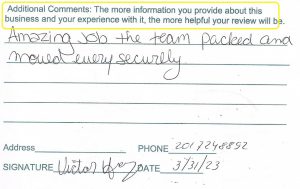 Additional Comments: The more information you provide about this
business and your experience with it, the more helpful your review will be.
Amazing job the team packed and
moved every securely
Address
PHONE 2017248892
SIGNATURE Victor DATE 3/31/23